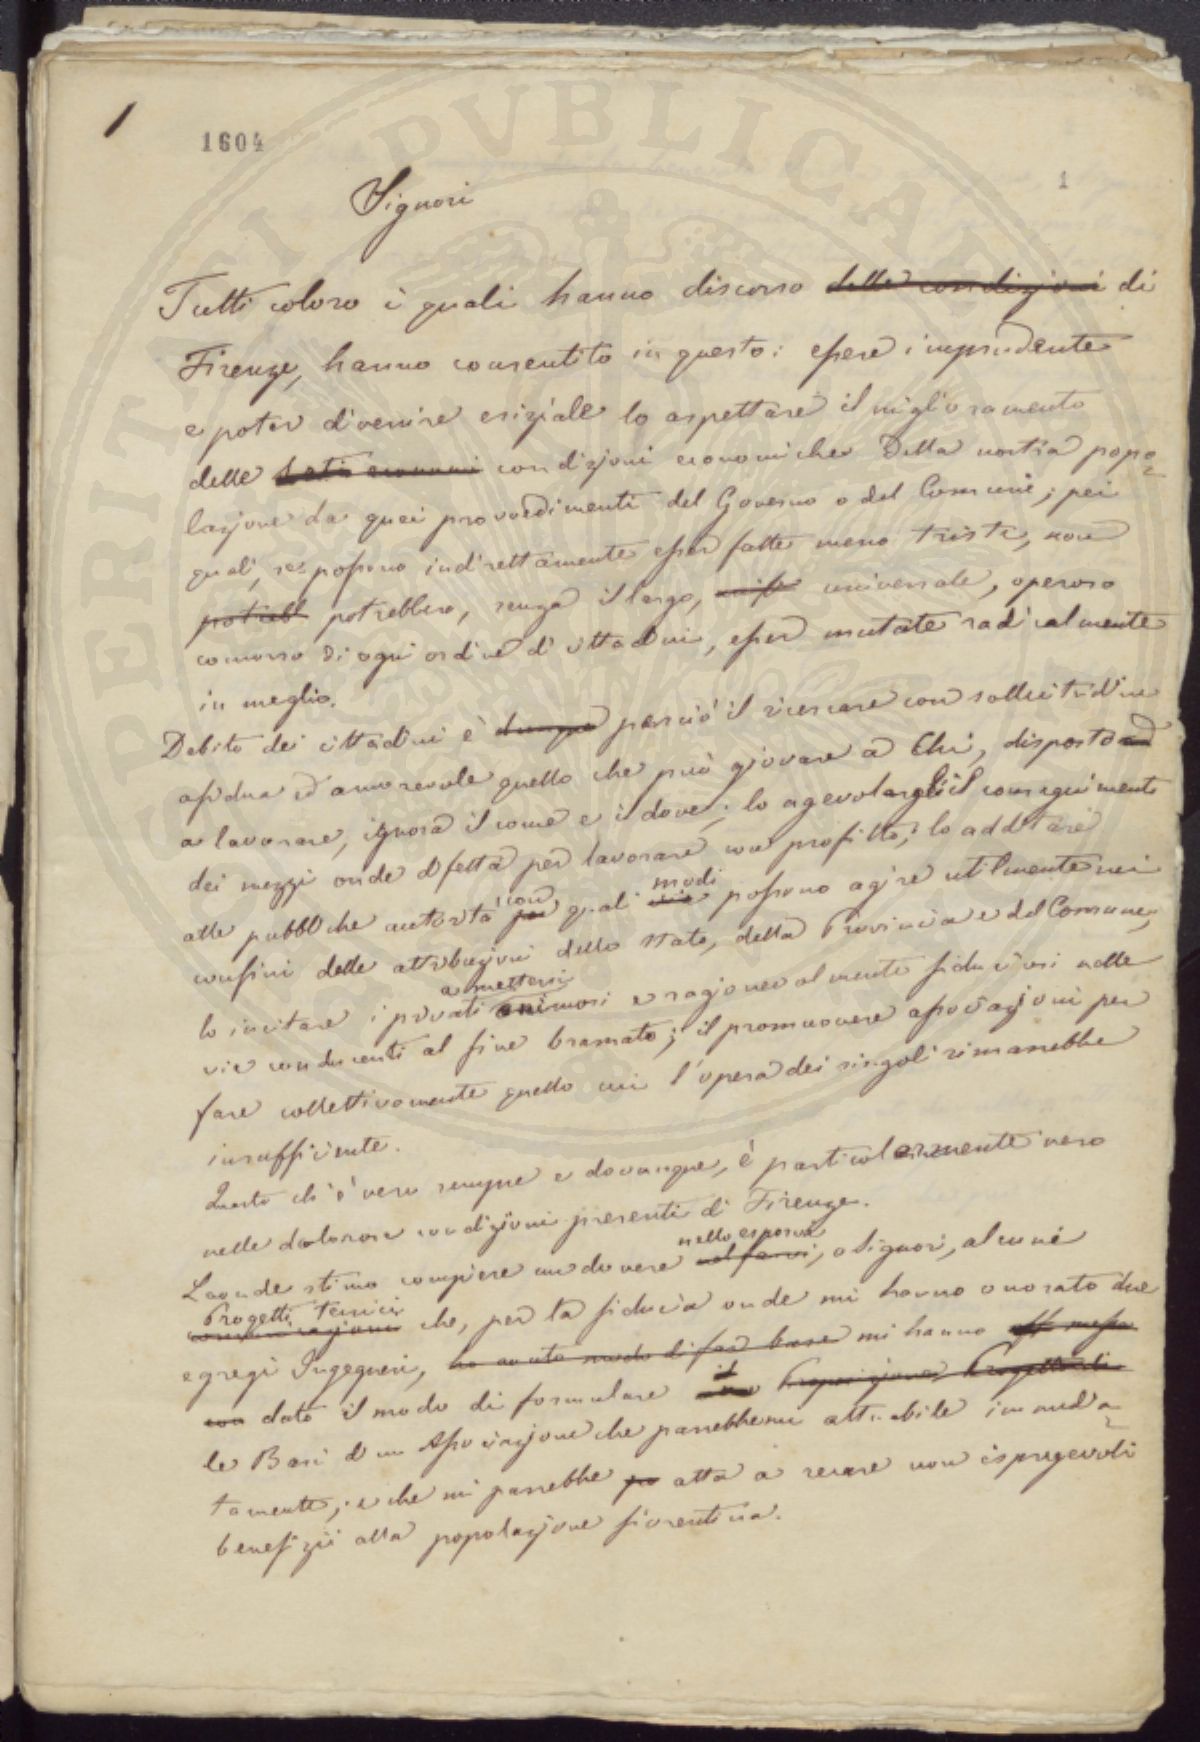 1
1604
1
Signori
Tutti coloro i quali hanno discorso delle condizioni di
Firenze, hanno consentito in questo: essere imprudente
e poter divenire esiziale lo aspettare il miglioramento
delle condizioni economiche della nostra popo=
lazione da quei provvedimenti del Governo o del Comune; pei
quali, se possono indirettamente esser fatte meno tristi, non
potrebb potrebbero, senza il largo, universale, operoso
concorso di ogni ordine di cittadini, esser mutate radicalmente
in meglio.
Debito dei cittadini è dunque perciò il ricercare con sollecitudine
assidua ed amorevole quello che può giovare a Chi, disposto
a lavorare, ignora il come e il dove; lo agevolargli il conseguimento
dei mezzi onde difetta per lavorare con profitto; lo additare
modi
con
alle pubbliche autorità per quali vie possono agire utilmente nei
confini delle attribuzioni dello stato, della Provincia e del Comune;
a mettersi
lo incitare i privati animosi e ragionevolmente fiduciosi nelle
vie conducenti al fine bramato; il promuovere associazioni per
fare collettivamente quello cui l'opera dei singoli rimarrebbe
insufficiente.
Questo ch'è vero sempre e dovunque, è particolarmente vero
nelle dolorose condizioni presenti di Firenze.
nello esporvi
Laonde stimo compiere un dovere nel farvi, o Signori, alcune
Progetti tecnici
comunicazioni che, per la fiducia onde mi hanno onorato due
egregi Ingegneri, ho avuto modo di far base mi hanno messo
il
con dato il modo di formulare Proposizione Progetto di
le Basi d'un Associazione che parrebbemi attuabile immedia=
tamente; e che mi parrebbe atta a recare non ispregevoli
benefizii alla popolazione fiorentina.
PERITATI PVBLICAE